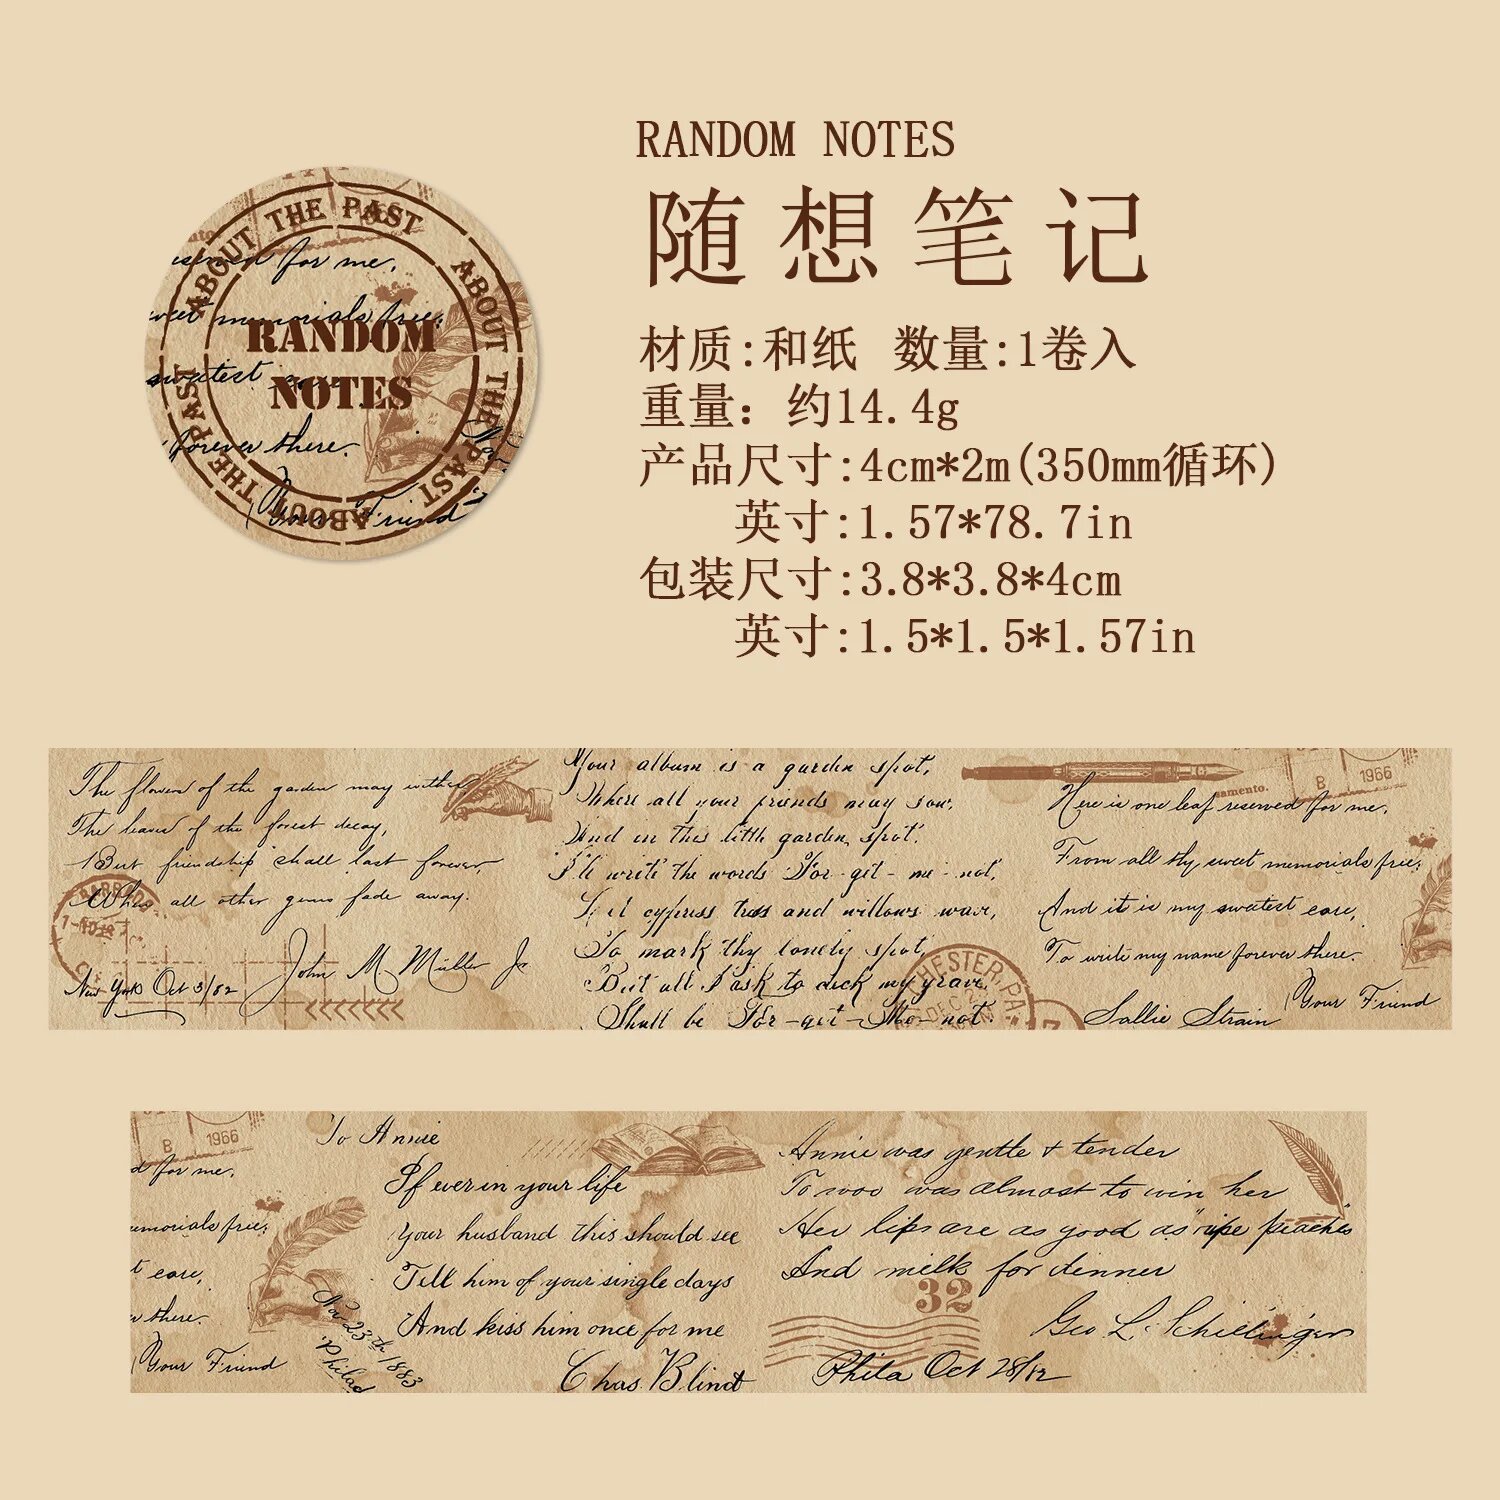 RANDOM NOTES
随想笔记
材质:和纸 数量:1卷入
重量：约14.4g
产品尺寸:4cm*2m(350mm循环)
英寸:1.57*78.7in
包装尺寸:3.8*3.8*4cm
英寸:1.5*1.5*1.57in
ABOUT THE PAST
ABOUT THE PAST
ABOUT THE PAST
RANDOM
NOTES
for me,
sweetest
forever there.
Your Friend
The flowers of the garden may wither,
The leaves of the forest decay,
But friendship shall last forever,
When all other gems fade away.
John M Muller Jr
New York Oct 3/82
Your album is a garden spot,
Where all your friends may sow,
And in this little garden spot.
I'll write the words For-get-me-not,
Let cypress trees and willows wave,
To mark thy lonely spot,
But all I ask to deck my grave.
Shall be For-get-Me-not.
CHESTER, PA.
DEC
B
1966
samento.
Here is one leaf reserved for me,
From all thy sweet memorials free;
And it is my sweetest care,
To write my name forever there.
Your Friend
Sallie Strain
B
1966
d for me,
emorials free;
t care,
there.
Your Friend
Nov 23th 1883
Philad
To Annie
If ever in your life
Your husband this should see
Tell him of your single days
And kiss him once for me
Chas. Blind
Annie was gentle & tender
To woo was almost to win her
Her lips are as good as "ripe peaches
And milk for dinner
32
Geo L. Schillinger
Phila Oct 28/82